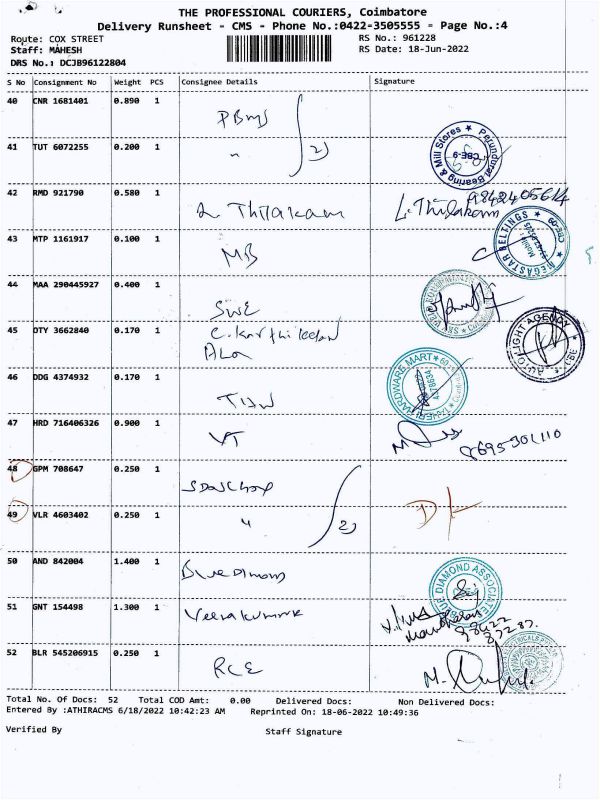 THE PROFESSIONAL COURIERS, Coimbatore
Delivery Runsheet - CMS - Phone No.:0422-3505555 - Page No.:4
Route: COX STREET
RS No.: 961228
Staff: MAHESH
RS Date: 18-Jun-2022
DRS No.: DCJB96122804
S No Consignment No Weight PCS Consignee Details Signature
40 CNR 1681401 0.890 1
PBMS
41 TUT 6072255 0.200 1
" 2)
Perundurai Bearing & Mill Stores ★ CBE-9
42 RMD 921790 0.580 1
9842405614
L. Thilakam L. Thilakam
43 MTP 1161917 0.100 1
MEGASTAR BELTINGS ★ CBE-09
MB
44 MAA 290445927 0.400 1
SWE
45 OTY 3662840 0.170 1
C. Karthikeyan
ALA
AUTOLIGHT AGENCY ★ CBE
46 DDG 4374932 0.170 1
TAHERI HARDWARE MART
THW
47 HRD 716406326 0.900 1
VT 8695301110
48 GPM 708647 0.250 1
49 VLR 4603402 0.250 1
" 2)
50 AND 842004 1.400 1
Bluediamond
BLUE DIAMOND ASSOCIATE
51 GNT 154498 1.300 1
Veerakumar
98422
87287.
52 BLR 545206915 0.250 1
RCE
Total No. Of Docs: 52 Total COD Amt: 0.00 Delivered Docs: Non Delivered Docs:
Entered By :ATHIRACMS 6/18/2022 10:42:23 AM Reprinted On: 18-06-2022 10:49:36
Verified By Staff Signature